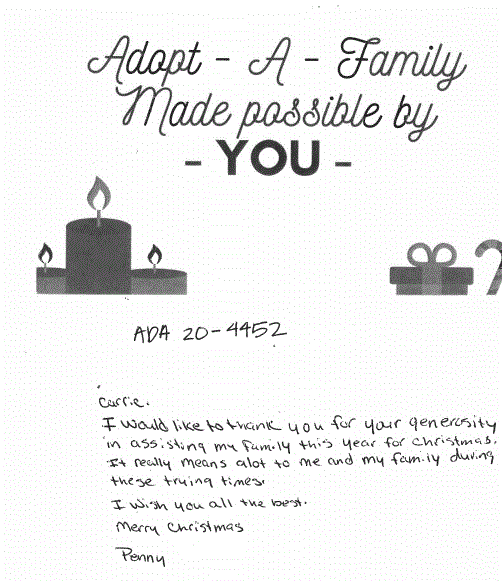 Adopt - A - Family
Made possible by
- YOU -
ADA 20-4452
Carrie.
I would like to thank you for your generosity
in assisting my family this year for christmas.
It really means alot to me and my family during
these trying times.
I wish you all the best.
Merry Christmas
Penny